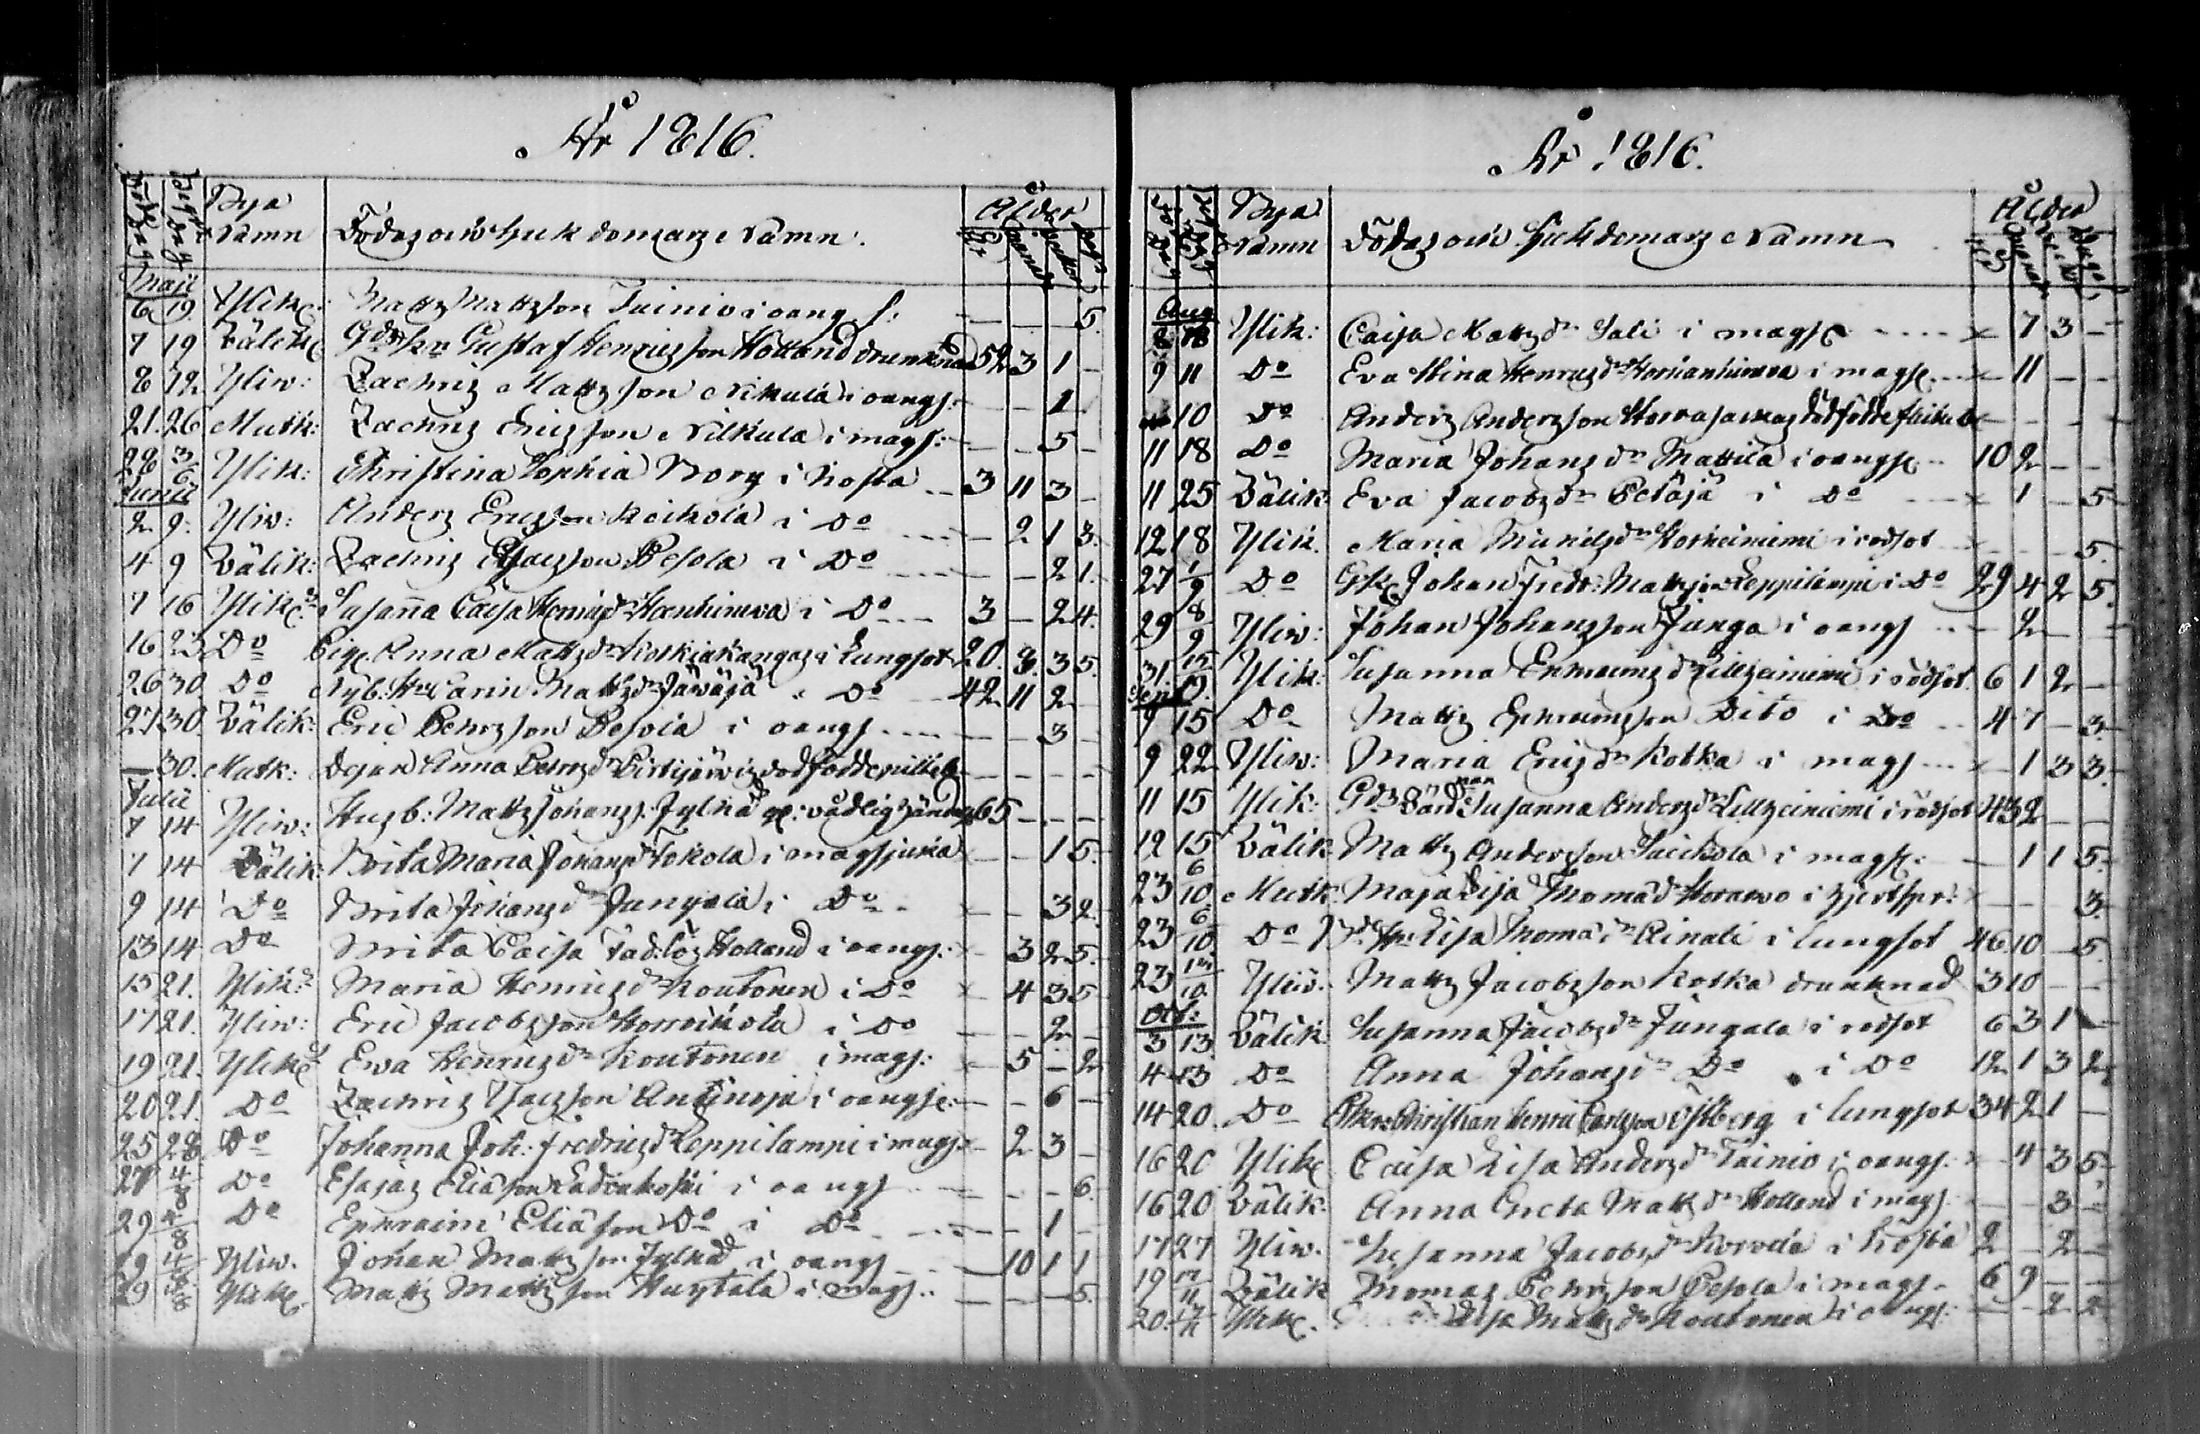 År 1816.
Döde dag Begr: dag Bya Namn Dödas och Sjukdomars Namn. Ålder År Månad Veckor Dagar
Maji
6 19 Ylik: Matts Mattsson Tainio i oang s: — — — 5.
7 19 Välik: Gustaf Henricsson Holland drunknad 52 3 1 —
8 12 Yliw: Zachris Mattsson Nikula i oangs: — — 1
21. 26 Mutk: Zachris Ericsson Nilkula i mags: — — 5 —
28 3/6 Ylik: Christina Sophia Borg i hosta 3 11 3 —
Junii
2 9. Yliw: Anders Ericsson Keikola i Do — 2 1 3.
4 9 Välik: Zachris Pesola i Do — — 2 1.
7 16 Ylik: Susanna Caisa i Do 3 — 2 4.
16 23 Do Pig. Anna Mattsdr Koskiakangas i Lungsot 20. 9. 3 5.
26 30. Do Nyb. Hu Carin Mattsdr Jäwäjä i Do 42 11 2 —
27 30. Välik: Eric Pehrsson Pesola i oangs — — 3 —
— 30. Mutk: Anna Pehrsdr dödfödde — — — —
Julii
7 14 Yliw: Husb: Matts Johanss: Jylhä 65 — — —
7 14 Välik: Brita Maria Johansdr Tokola i magsjuka — — 1 5.
9 14 Do Brita Johansdr Jungala i Do — — 3 2.
13 14 Do Brita Caisa Fad:lös Holland i oangs: — 3 2 5.
15 21. Ylik: Maria Henricsdr Koutonen i Do — 4 3 5
17 21. Yliw: Eric Jacobsson i Do — — 2 —
19 21. Ylik: Ewa Henricsdr Koutonen i mags: — 5 — 2
20 21. Do Zachris Antinoja i oangs: — — 6 —
25 28. Do Johanna Joh: Fredricsdr Leppilampi i mags: — 2 3 —
27 4/8 Do Esaias Eliasson i oangs — — — 6.
29 4/8 Do Ephraim Eliasson Do i Do — — 1 —
29 4/8 Yliw. Johan Mattsson Jylhä i oangs — 10 1 1
29 4/8 Ylik. Matts Mattsson Huytala i mags. — — — 5.
År 1816.
Död dag Begr: dag Bya Namn Dödas och Sjukdomars Namn Ålder År Månad Veckor Dagar
Aug
8 18 Ylik: Caisa Mattsdr Sali i mags: — 7 3 —
9 11 Do Eva Stina Henricsdr i mags: — 11 — —
10 Do Anders Andersson dödfödde — — — —
11 18 Do Maria Johansdr Mattila i oangs: 10 2 — —
11 25 Välik: Eva Jacobsdr Petäjä i Do — 1 — 5
12 18 Ylik. Maria Koskeiniemi i rödsot — — — 5.
27 1/9 Do Johan Fredr: Mattsson Leppilampi i Do 29 4 2 5.
29 8/9 Yliw: Johan Johansson Junga i oangs — 2 — —
31. 15/9. Ylik: Susanna Ephraimsdr i rödsot. 6 1 2 —
Sept:
9 15 Do Matts Ephraimsson Dito i Do 4 7 — 3
9 22 Yliw: Maria Ericsdr Kotka i mags — 1 3 3
11 15 Ylik: Susanna Andersdr i rödsot 43 2 — —
12 15 Välik Matts Andersson i mags: — 1 1 5
23 6/10. Mutk: Maja Lisa Thomasdr i — — — 3.
23 6/10 Do Lisa Thomasdr Ainali i lungsot 46 10 — 5.
23 13/10 Yliw. Matts Jacobsson Kotka drunknad 3 10 — —
Oct:
3 13 Välik Susanna Jacobsdr Jungala i rödsot 6 3 1 —
4 13 Do Anna Johansdr Do i Do 12 1 3 2
14 20. Do Christian Henric Carlsson Östberg i lungsot 34 2 1 —
16 20 Ylik. Caisa Lisa Andersdr Tainio i oangs. — 4 3 5
16 20 Välik: Anna Greta Mattsdr Holland i mags — — 3 —
17 27 Yliw. Susanna Jacobsdr i hosta 2 — 2 —
19 17/11 Välik Thomas Pehrsson Pesola i mags. 6 9 — —
20. 17/11 Ylik. Lisa Mattsdr Koutonen i oangs: — — 2 2